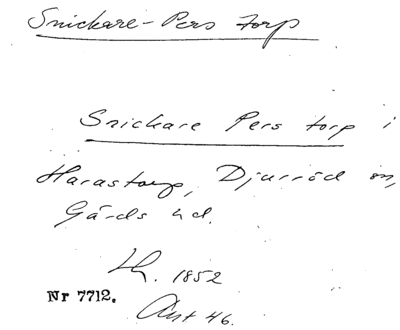 Snickare-Pers torp
Snickare Pers torp i
Harastorp, Djurröd sn,
Gärds hd.
Lh. 1852
Nr 7712.
Ant 46.